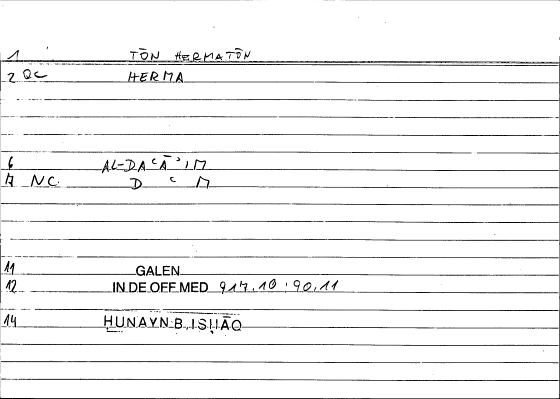 1 TŌN HERMATŌN
2 QC HERMA
6 AL-DAʿĀʾIM
7 NC. D ʿ M
11 GALEN
12 IN DE OFF. MED 917.10 : 90.11
14 ḤUNAYN B. ISḤĀQ